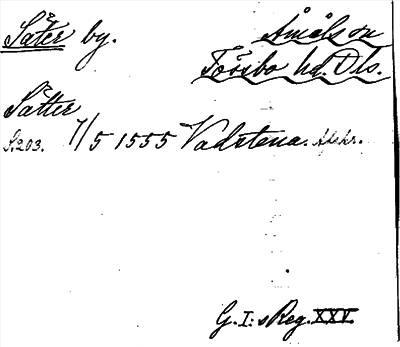 Säter by. Åmåls sn
Tössbo hd. Dls.
Sätter
S. 203. 7/5 1555 Vadstena. Afskr.
G. I:s Reg. XXV.